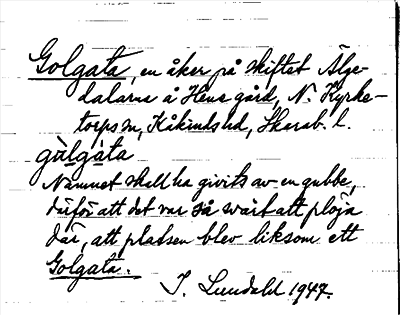 Golgata, en åker på skiftet Älge-
dalarna å Hene gård, N. Kyrke-
torps sn, Kåkinds hd, Skarab. l.
gòlgàta
Namnet skall ha givits av en gubbe,
därför att det var så svårt att plöja
där, att platsen blev liksom ett
Golgata.
I. Lundahl 1947.